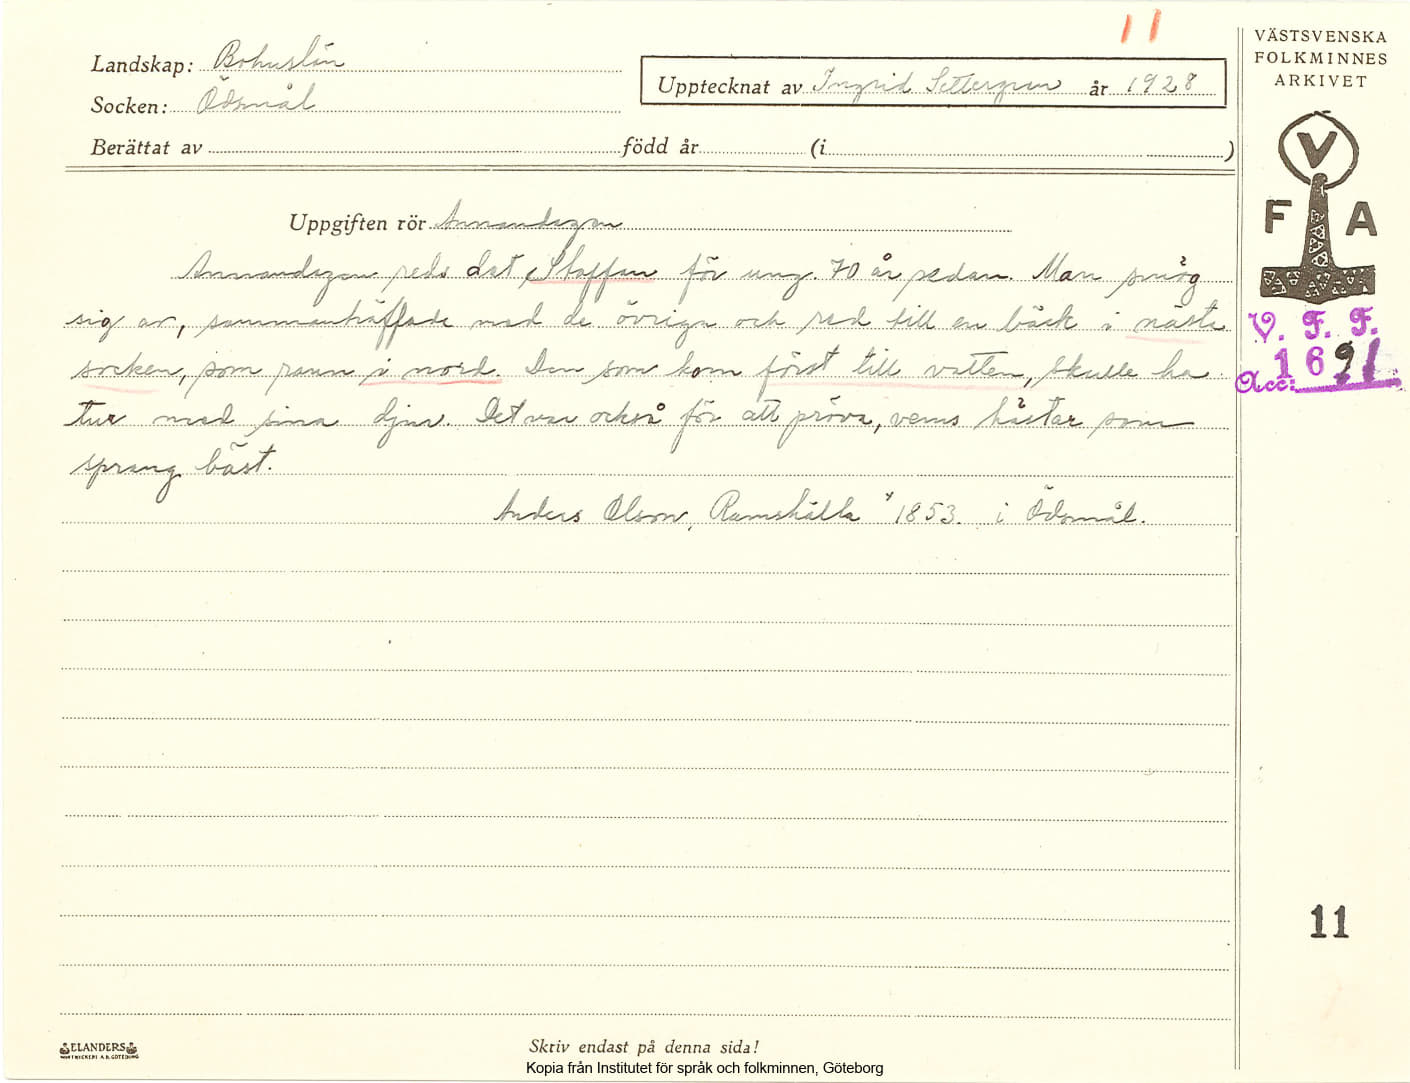 11
VÄSTSVENSKA
FOLKMINNES
ARKIVET
Landskap: Bohuslän
Socken: Ödsmål
Upptecknat av Ingrid Settergren år 1928
Berättat av född år (i )
V
F A
V. F. F.
Acc: 1691
Uppgiften rör Annandagen
Annandagen reds det Staffan för ung. 70 år sedan. Man smög
sig av, sammanträffade med de övriga och red till en bäck i nästa
socken, som rann i nord. Den som kom först till vatten, skulle ha
tur med sina djur. Det var också för att pröva, vems hästar som
sprang bäst.
Anders Olson, Ramshälla * 1853. i Ödsmål.
11
ELANDERS
Skriv endast på denna sida!
Kopia från Institutet för språk och folkminnen, Göteborg